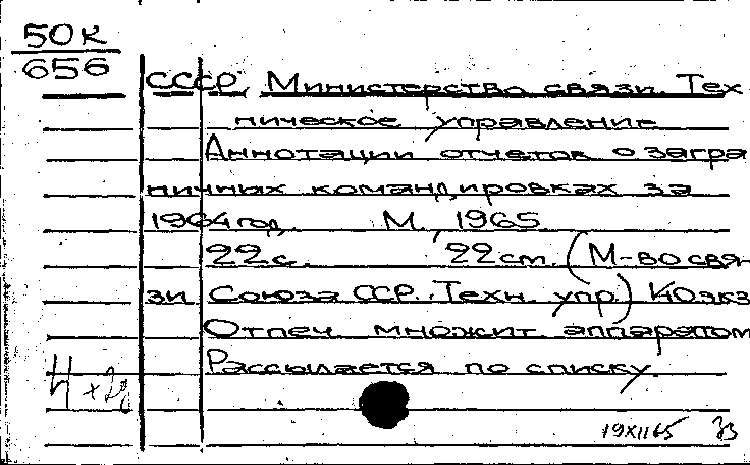 50К
656
СССР. Министерство связи. Тех
ническое управление
Аннотации отчетов о загра
ничных командировках за
1964 год. М., 1965
22с. 22см. (М-во свя
зи Союза ССР. Техн. упр.) 40экз
Отпеч. множит аппаратом
Рассылается по списку.
19XII65